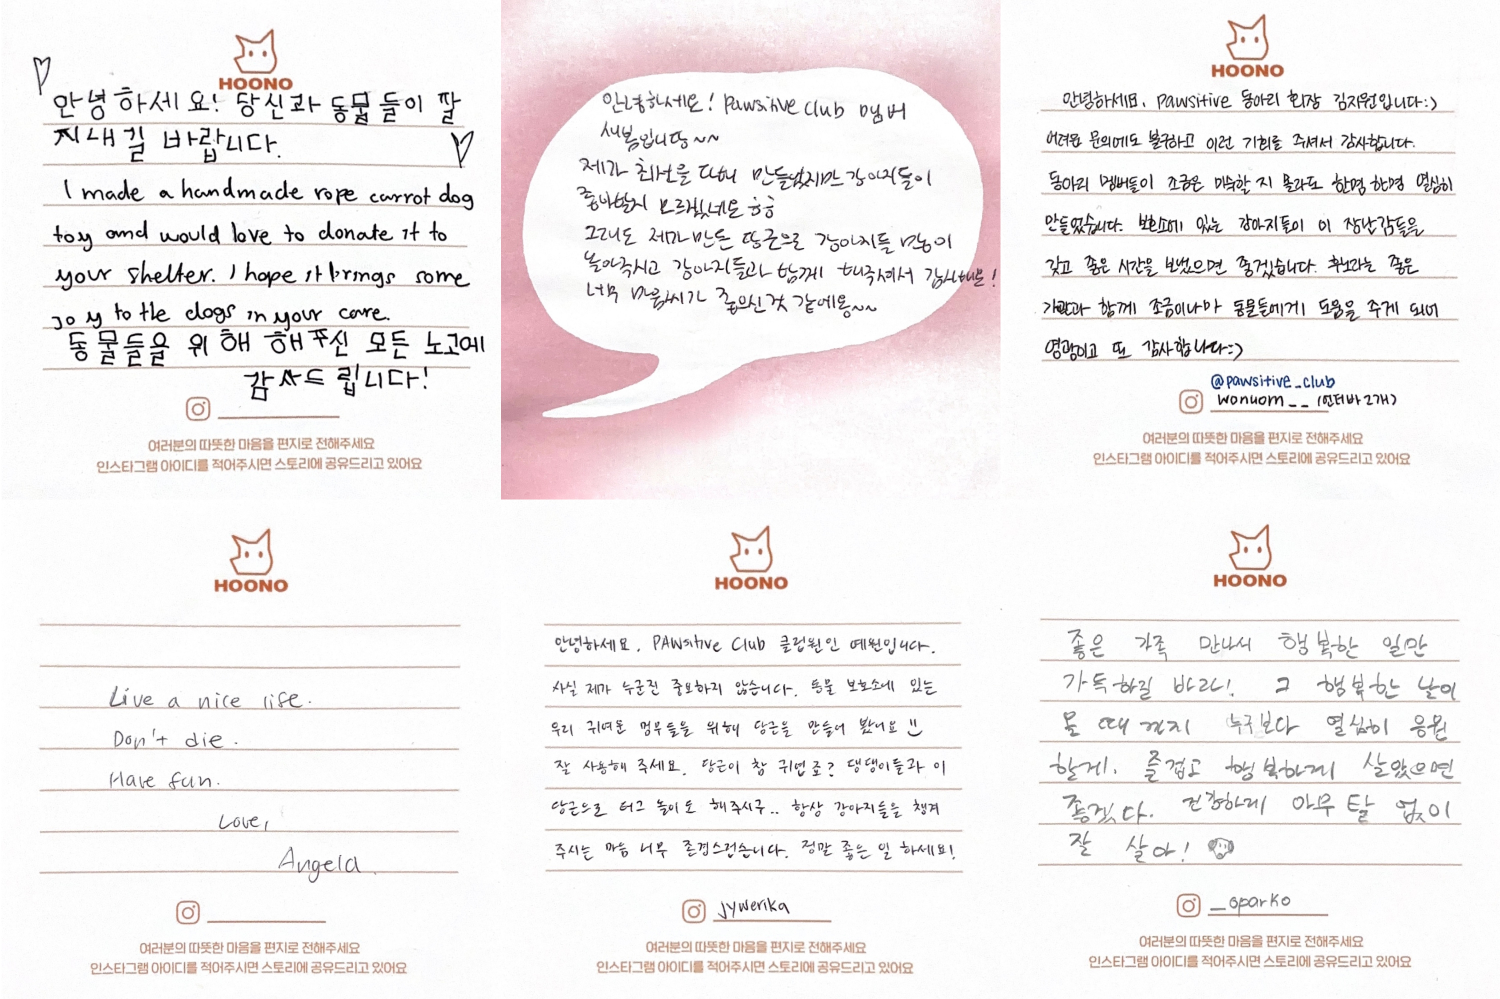 HOONO
안녕하세요! 당신과 동물들이 잘
지내길 바랍니다.
I made a handmade rope carrot dog
toy and would love to donate it to
your shelter. I hope it brings some
joy to the dogs in your care.
동물들을 위해 해주신 모든 노고에
감사드립니다!
여러분의 따뜻한 마음을 편지로 전해주세요
인스타그램 아이디를 적어주시면 스토리에 공유드리고 있어요
안녕하세요! Pawsitive Club 멤버
새봄입니당~~
제가 최선을 다해 만들었지만 강아지들이
좋아할지 모르겠네요 ㅎㅎ
그래도 제가 만든 당근으로 강아지들 많이
놀아주시고 강아지들과 함께 해주셔서 감사해요!
너무 마음씨가 좋으신것 같에용~~
HOONO
안녕하세요, Pawsitive 동아리 회장 김지원입니다:)
어려운 문의에도 불구하고 이런 기회를 주셔서 감사합니다.
동아리 멤버들이 조금은 미숙할 지 몰라도 한명 한명 열심히
만들었습니다. 보호소에 있는 강아지들이 이 장난감들을
갖고 좋은 시간을 보냈으면 좋겠습니다. 후원과는 좋은
기관과 함께 조금이나마 동물들에게 도움을 주게 되어
영광이고 또 감사합니다:)
@pawsitive_club
wonuom__ (언더바 2개)
여러분의 따뜻한 마음을 편지로 전해주세요
인스타그램 아이디를 적어주시면 스토리에 공유드리고 있어요
HOONO
Live a nice life.
Don't die.
Have fun.
Love,
Angela.
여러분의 따뜻한 마음을 편지로 전해주세요
인스타그램 아이디를 적어주시면 스토리에 공유드리고 있어요
HOONO
안녕하세요, PAWsitive Club 클럽원인 예원입니다.
사실 제가 누군진 중요하지 않습니다. 동물 보호소에 있는
우리 귀여운 멈무들을 위해 당근을 만들어 봤어요 !!
잘 사용해 주세요. 당근이 참 귀엽죠? 댕댕이들과 이
당근으로 터그 놀이도 해주시구.. 항상 강아지들을 챙겨
주시는 마음 너무 존경스럽습니다. 정말 좋은 일 하세요!
jywerika
여러분의 따뜻한 마음을 편지로 전해주세요
인스타그램 아이디를 적어주시면 스토리에 공유드리고 있어요
HOONO
좋은 가족 만나서 행복한 일만
가득하길 바라! 그 행복한 날이
올 때 까지 누구보다 열심히 응원
할게. 즐겁고 행복하게 살았으면
좋겠다. 건강하게 아무 탈 없이
잘 살아!
_oparko
여러분의 따뜻한 마음을 편지로 전해주세요
인스타그램 아이디를 적어주시면 스토리에 공유드리고 있어요